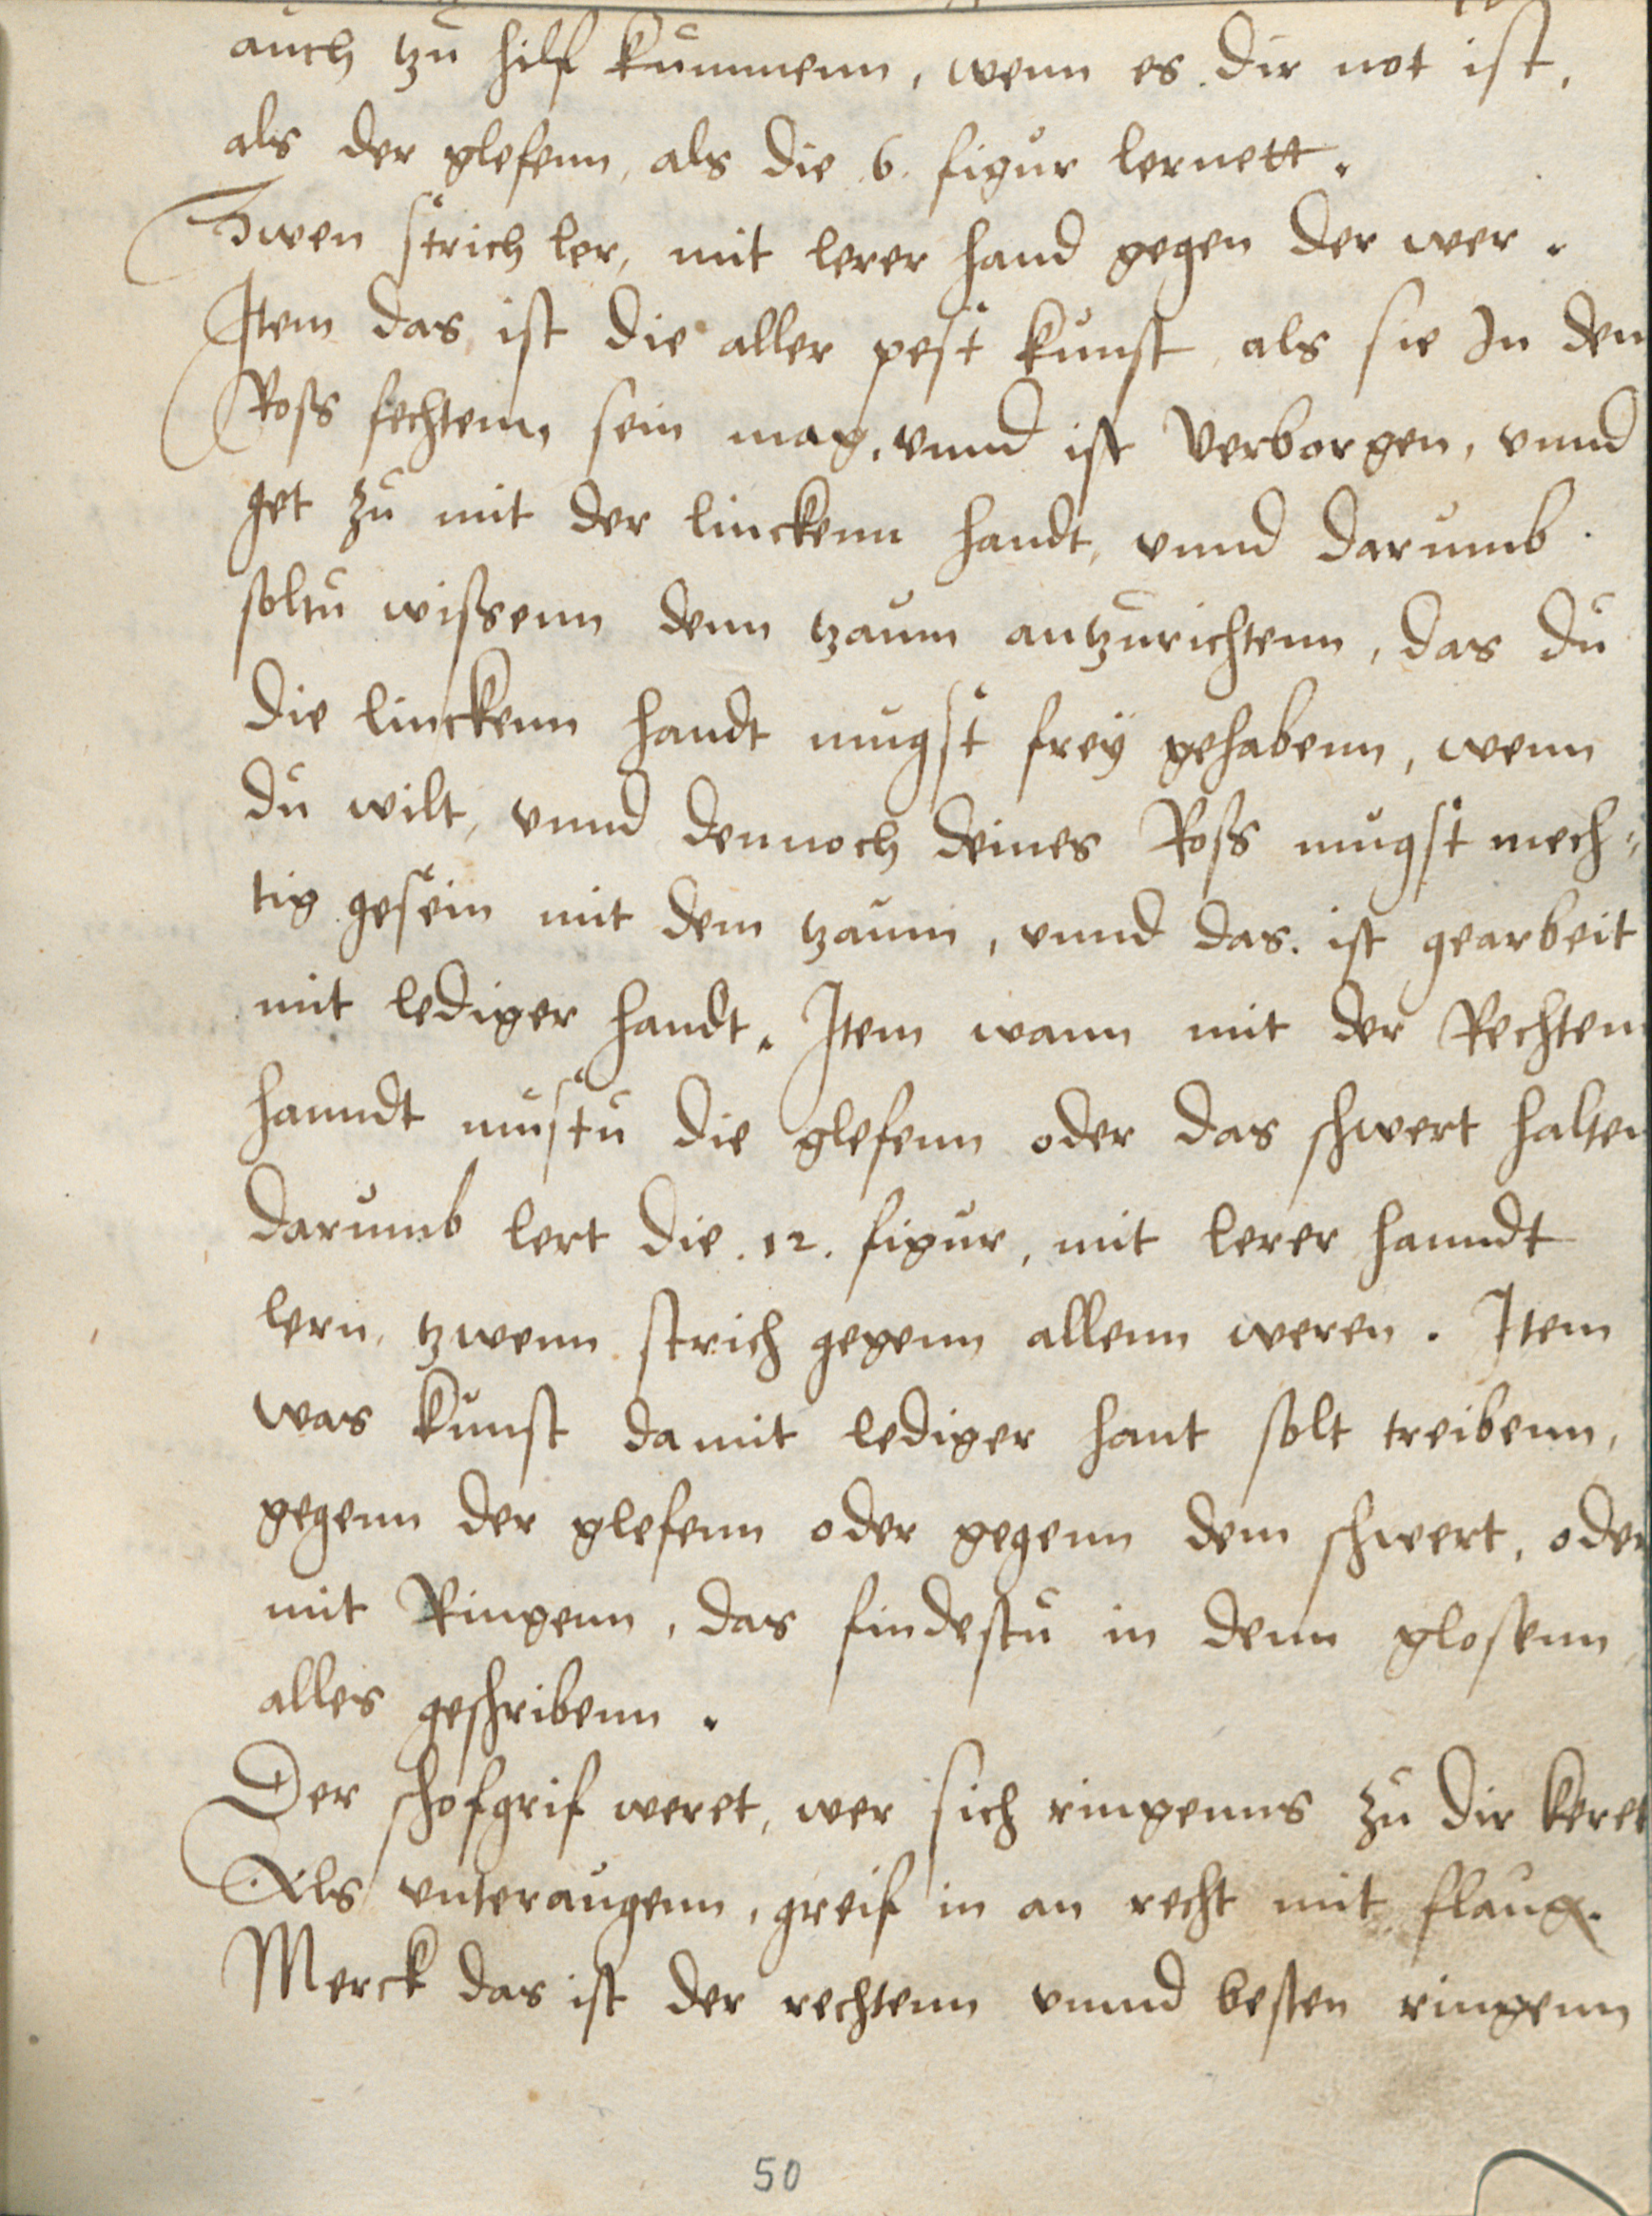 auch tzu hilf kummenn, wenn es dir not ist,
als der glefenn, als die .6. figur lernett.
Zwen strich ler, mit lerer hand gegen der wer.
Item das ist die aller pest kunst als sie In den
Ross fechtenn, sein mag, vnnd ist Verborgen, vnnd
get zu mit der linckenn handt, vnnd darumb
soltu wissenn denn tzaum antzurichtenn, das du
die linckenn handt mugst frey gehabenn, wenn
du wilt, vnnd dennoch deines Ross mugst mech-
tig gesein mit dem tzaum, vnnd das ist gearbeit
mit lediger handt. Item wann mit der Rechten
hanndt mustu die glefenn oder das schwert halten
darumb lert die .12. figur, mit lerer hanndt
lern, tzwenn strich gegenn allenn weren. Item
was kunst da mit lediger hant solt treibenn,
gegenn der glefenn oder gegenn dem schwert, oder
mit Ringenn, das findestu in denn glosenn
alles geschribenn.
Der schofgrif weret, wer sich ringenns zu dir keret
Als vnteraugenn, greif in an recht mit flaug.
Merck das ist der rechtenn vnnd besten ringenn
50